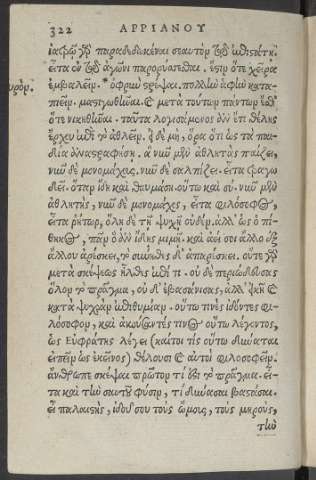 322 ΑΡΡΙΑΝΟΥ
ἰατρῷ γδ παραδεδωκέναι σεαυτὸν τῷ ἐπιστάτῃ.
εἶτα ἐν τῷ ἀγῶνι παρορύσσεσθαι. ἔστιν ὅτε χεῖρα
ἐμβαλεῖν. σφυρὸν στρέψαι. πολλὴν ἁφὴν κατα-
πιεῖν. μαστιγωθῆναι. καὶ μετὰ τούτων πάντων ἔσθ'
ὅτε νικηθῆναι. ταῦτα λογισάμενος ἂν ἔτι θέλῃς
ἔρχευ ἐπὶ τὸ ἀθλεῖν. εἰ δὲ μὴ, ὅρα ὅτι ὡς τὰ παι-
δία ἀναστραφήσῃ. ἃ νῦν μὲν ἀθλητὰς παίζει,
νῦν δὲ μονομάχους. νῦν δὲ σαλπίζει. εἶτα τραγῳ
δεῖ. ὅταν ἴδῃ καὶ θαυμάσῃ. οὕτω καὶ σύ. νῦν μὲν
ἀθλητὴς, νῦν δὲ μονομάχος, εἶτα φιλόσοφος,
εἶτα ῥήτωρ, ὅλῃ δὲ τῇ ψυχῇ οὐδέν. ἀλλ' ὡς ὁ πί-
θηκος, πᾶν ὃ ἂν ἴδῃς μιμῇ. καὶ ἀεί σοι ἄλλο ἐξ
ἄλλου ἀρέσκει. τὸ σύνηθες δ' ἀπαρέσκει. οὔτε γδ
μετὰ σκέψεως ἦλθες ἐπί τι. οὐ δὲ περιωδεύσας
ὅλον τὸ πρᾶγμα, οὐ δ' ἐβασανίσας, ἀλλ' εἰκῆ καὶ
κατὰ ψυχρὰν ἐπιθυμίαν. οὕτω τινὲς ἰδόντες φι-
λόσοφον, καὶ ἀκούσαντές τινος οὕτω λέγοντος,
ὡς Εὐφράτης λέγει (καίτοι τίς οὕτω δύναται
εἰπεῖν ὡς ἐκεῖνος) θέλουσι καὶ αὐτοὶ φιλοσοφεῖν.
ἄνθρωπε σκέψαι πρῶτον τί ἐστι τὸ πρᾶγμα. εἶ-
τα καὶ τὴν σαυτοῦ φύσιν, τί δύνασαι βαστάσαι.
εἰ παλαιστὴς, ἰδοῦ σου τοὺς ὤμους, τοὺς μηροὺς,
τὴν